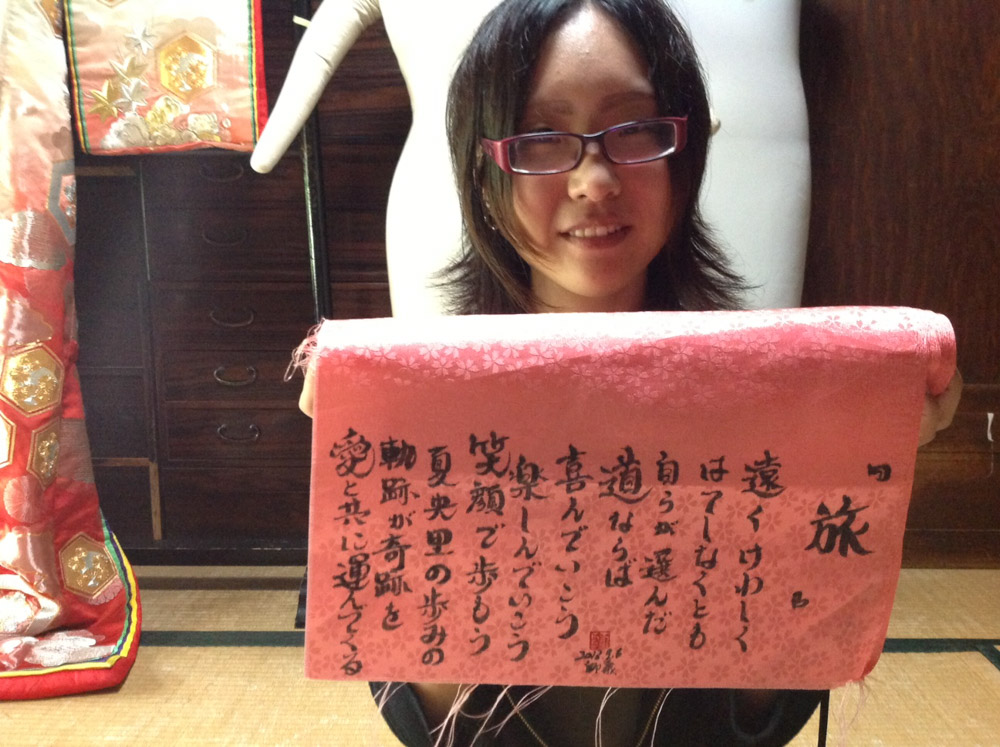 「旅」
遠くけわしく
はてしなくとも
自らが選んだ
道ならば
喜んでいこう
楽しんでいこう
笑顔で歩もう
夏央里の歩みの
軌跡が奇跡を
愛と共に運んでくる